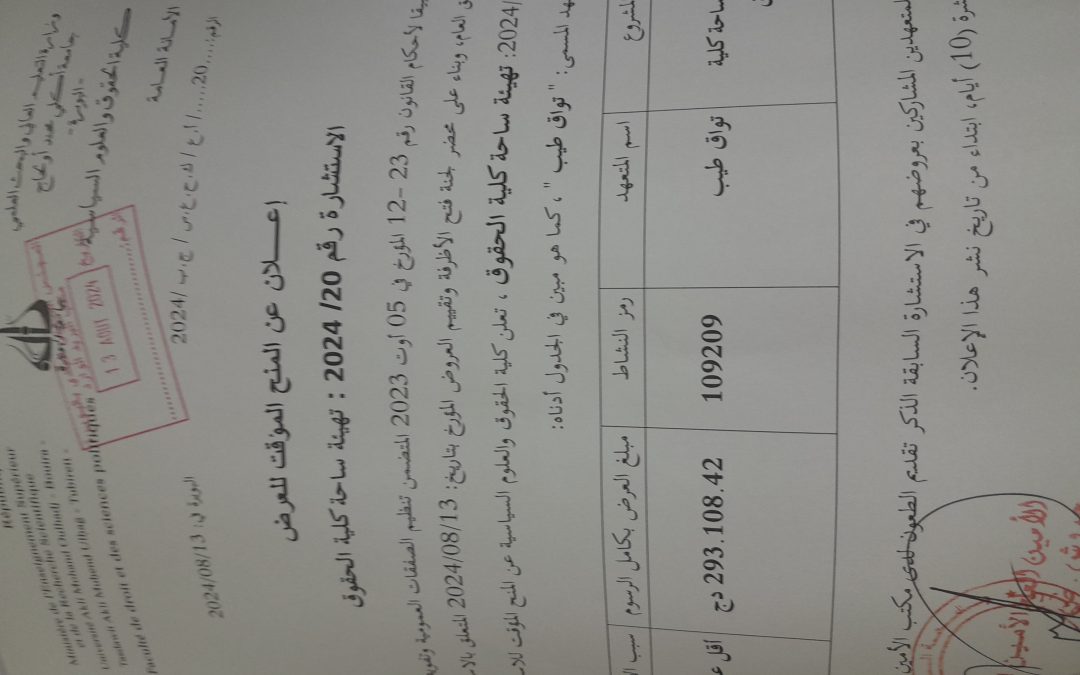 وزارة التعليم العالي والبحث العلمي
جامعة أكلي محند أولحاج
- البويرة -
كلية الحقوق والعلوم السياسية
الأمانة العامة
Ministère de l'Enseignement Supérieur
et de la Recherche Scientifique
Université Akli Mohand Ulhag - Bouira -
Faculté de droit et des sciences politiques
13 AOUT 2024
2024/
البويرة في: 2024/08/13
إعـــلان عن المنح المؤقت للعرض
الاستشارة رقم 20/ 2024 : تهيئة ساحة كلية الحقوق
لأحكام القانون رقم 23 -12 المؤرخ في 05 اوت 2023 المتضمن تنظيم الصفقات العمومية
العام، وبناء على محضر لجنة فتح الأظرفة وتقييم العروض المؤرخ بتاريخ: 2024/08/13 المتعلق
2024: تهيئة ساحة كلية الحقوق ، تعلن كلية الحقوق والعلوم السياسية عن المنح المؤقت
المسمى: " تواق طيب "، كما هو مبين في الجدول أدناه:
اسم المتعهد رمز النشاط مبلغ العرض بكامل الرسوم سبب
ساحة كلية تواق طيب 109209 293.108.42 دج أقل
المشاركين بعروضهم في الاستشارة السابقة الذكر تقديم الطعون لدى مكتب الأمين
(10) أيام، ابتداء من تاريخ نشر هذا الإعلان.
الأمين العام